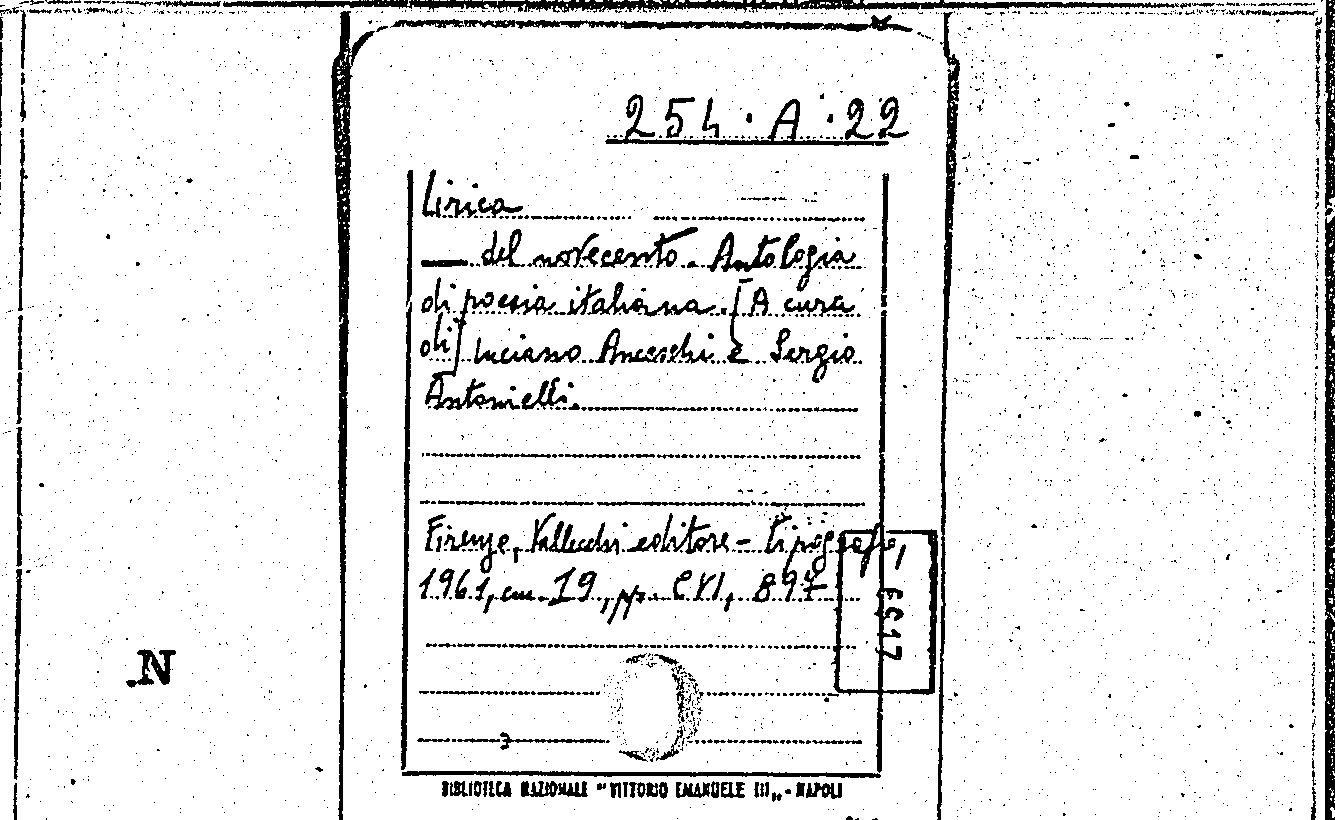 254 · A · 22
Lirica
— del novecento. Antologia
di poesia italiana. [A cura
di] Luciano Anceschi e Sergio
Antonielli.
Firenze, Vallecchi editore - tipografo,
1961, cm. 19, pp. CVI, 897
N
BIBLIOTECA NAZIONALE "VITTORIO EMANUELE III„ - NAPOLI